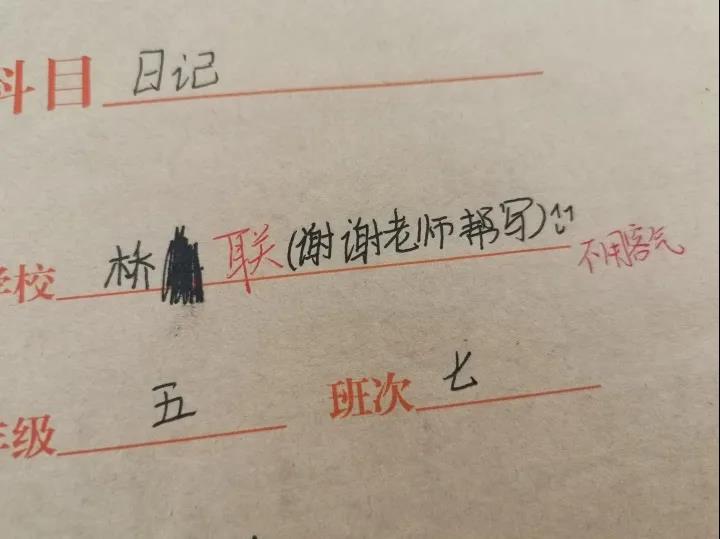 科目 日记
学校 林 联(谢谢老师帮写) 不用客气
年级 五 班次 七